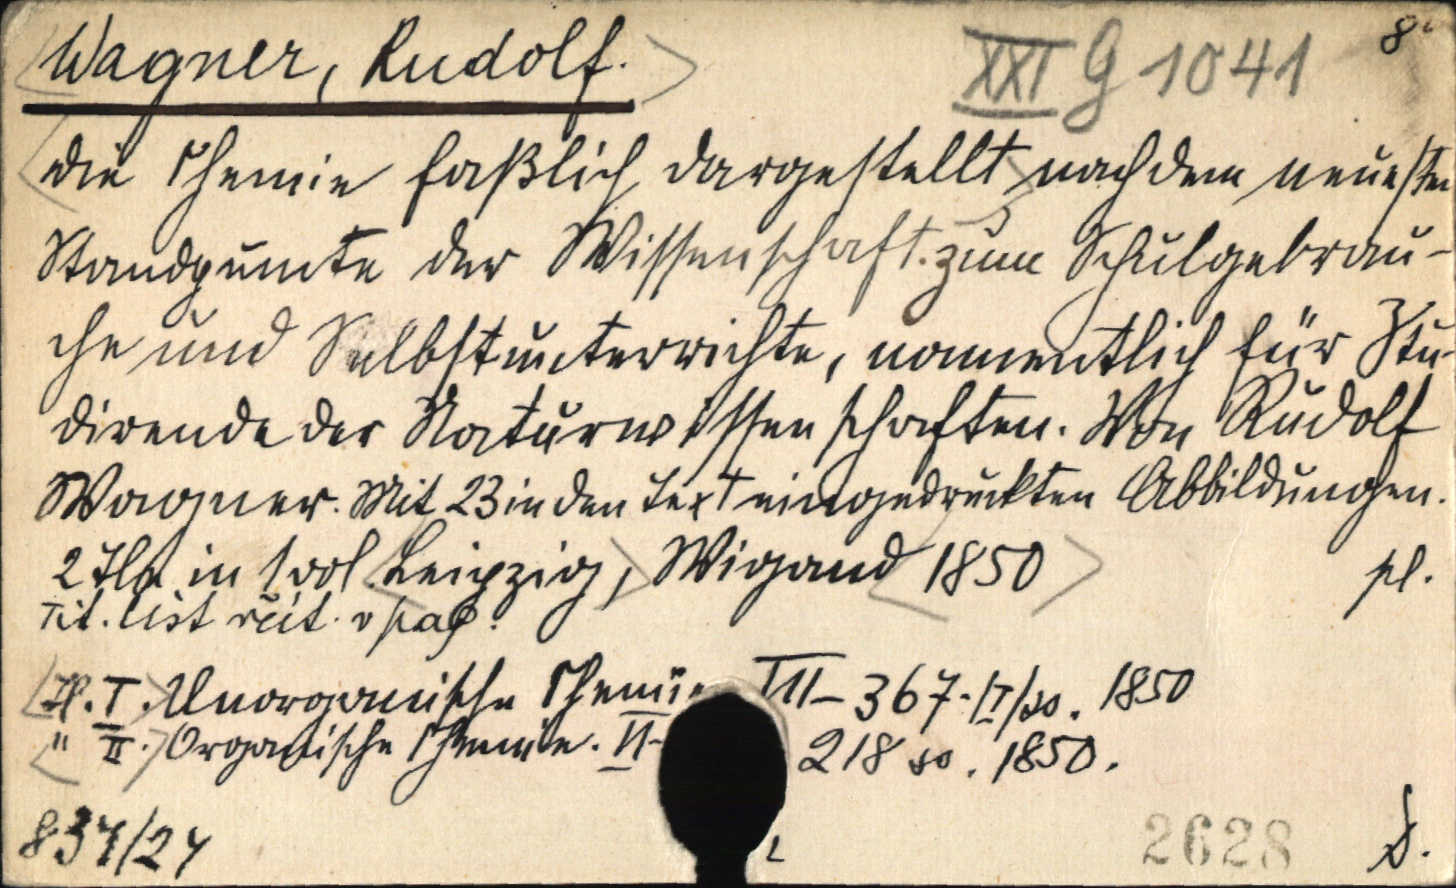 Wagner, Rudolf. XXI G 1041 8°
Die Chemie faßlich dargestellt nach dem neuesten
Standpunkte der Wissenschaft. zum Schulgebrau-
che und Selbstunterrichte, namentlich für Stu-
dirende der Naturwissenschaften. Von Rudolf
Wagner. Mit 23 in den Text eingedruckten Abbildungen.
2 Tle. in 1 vol Leipzig, Wigand 1850 pl.
Tit. list
Tl. I. Unorganische Chemie 367 1850
" II. Organische Chemie. VI- 218 so. 1850.
837/27 2628